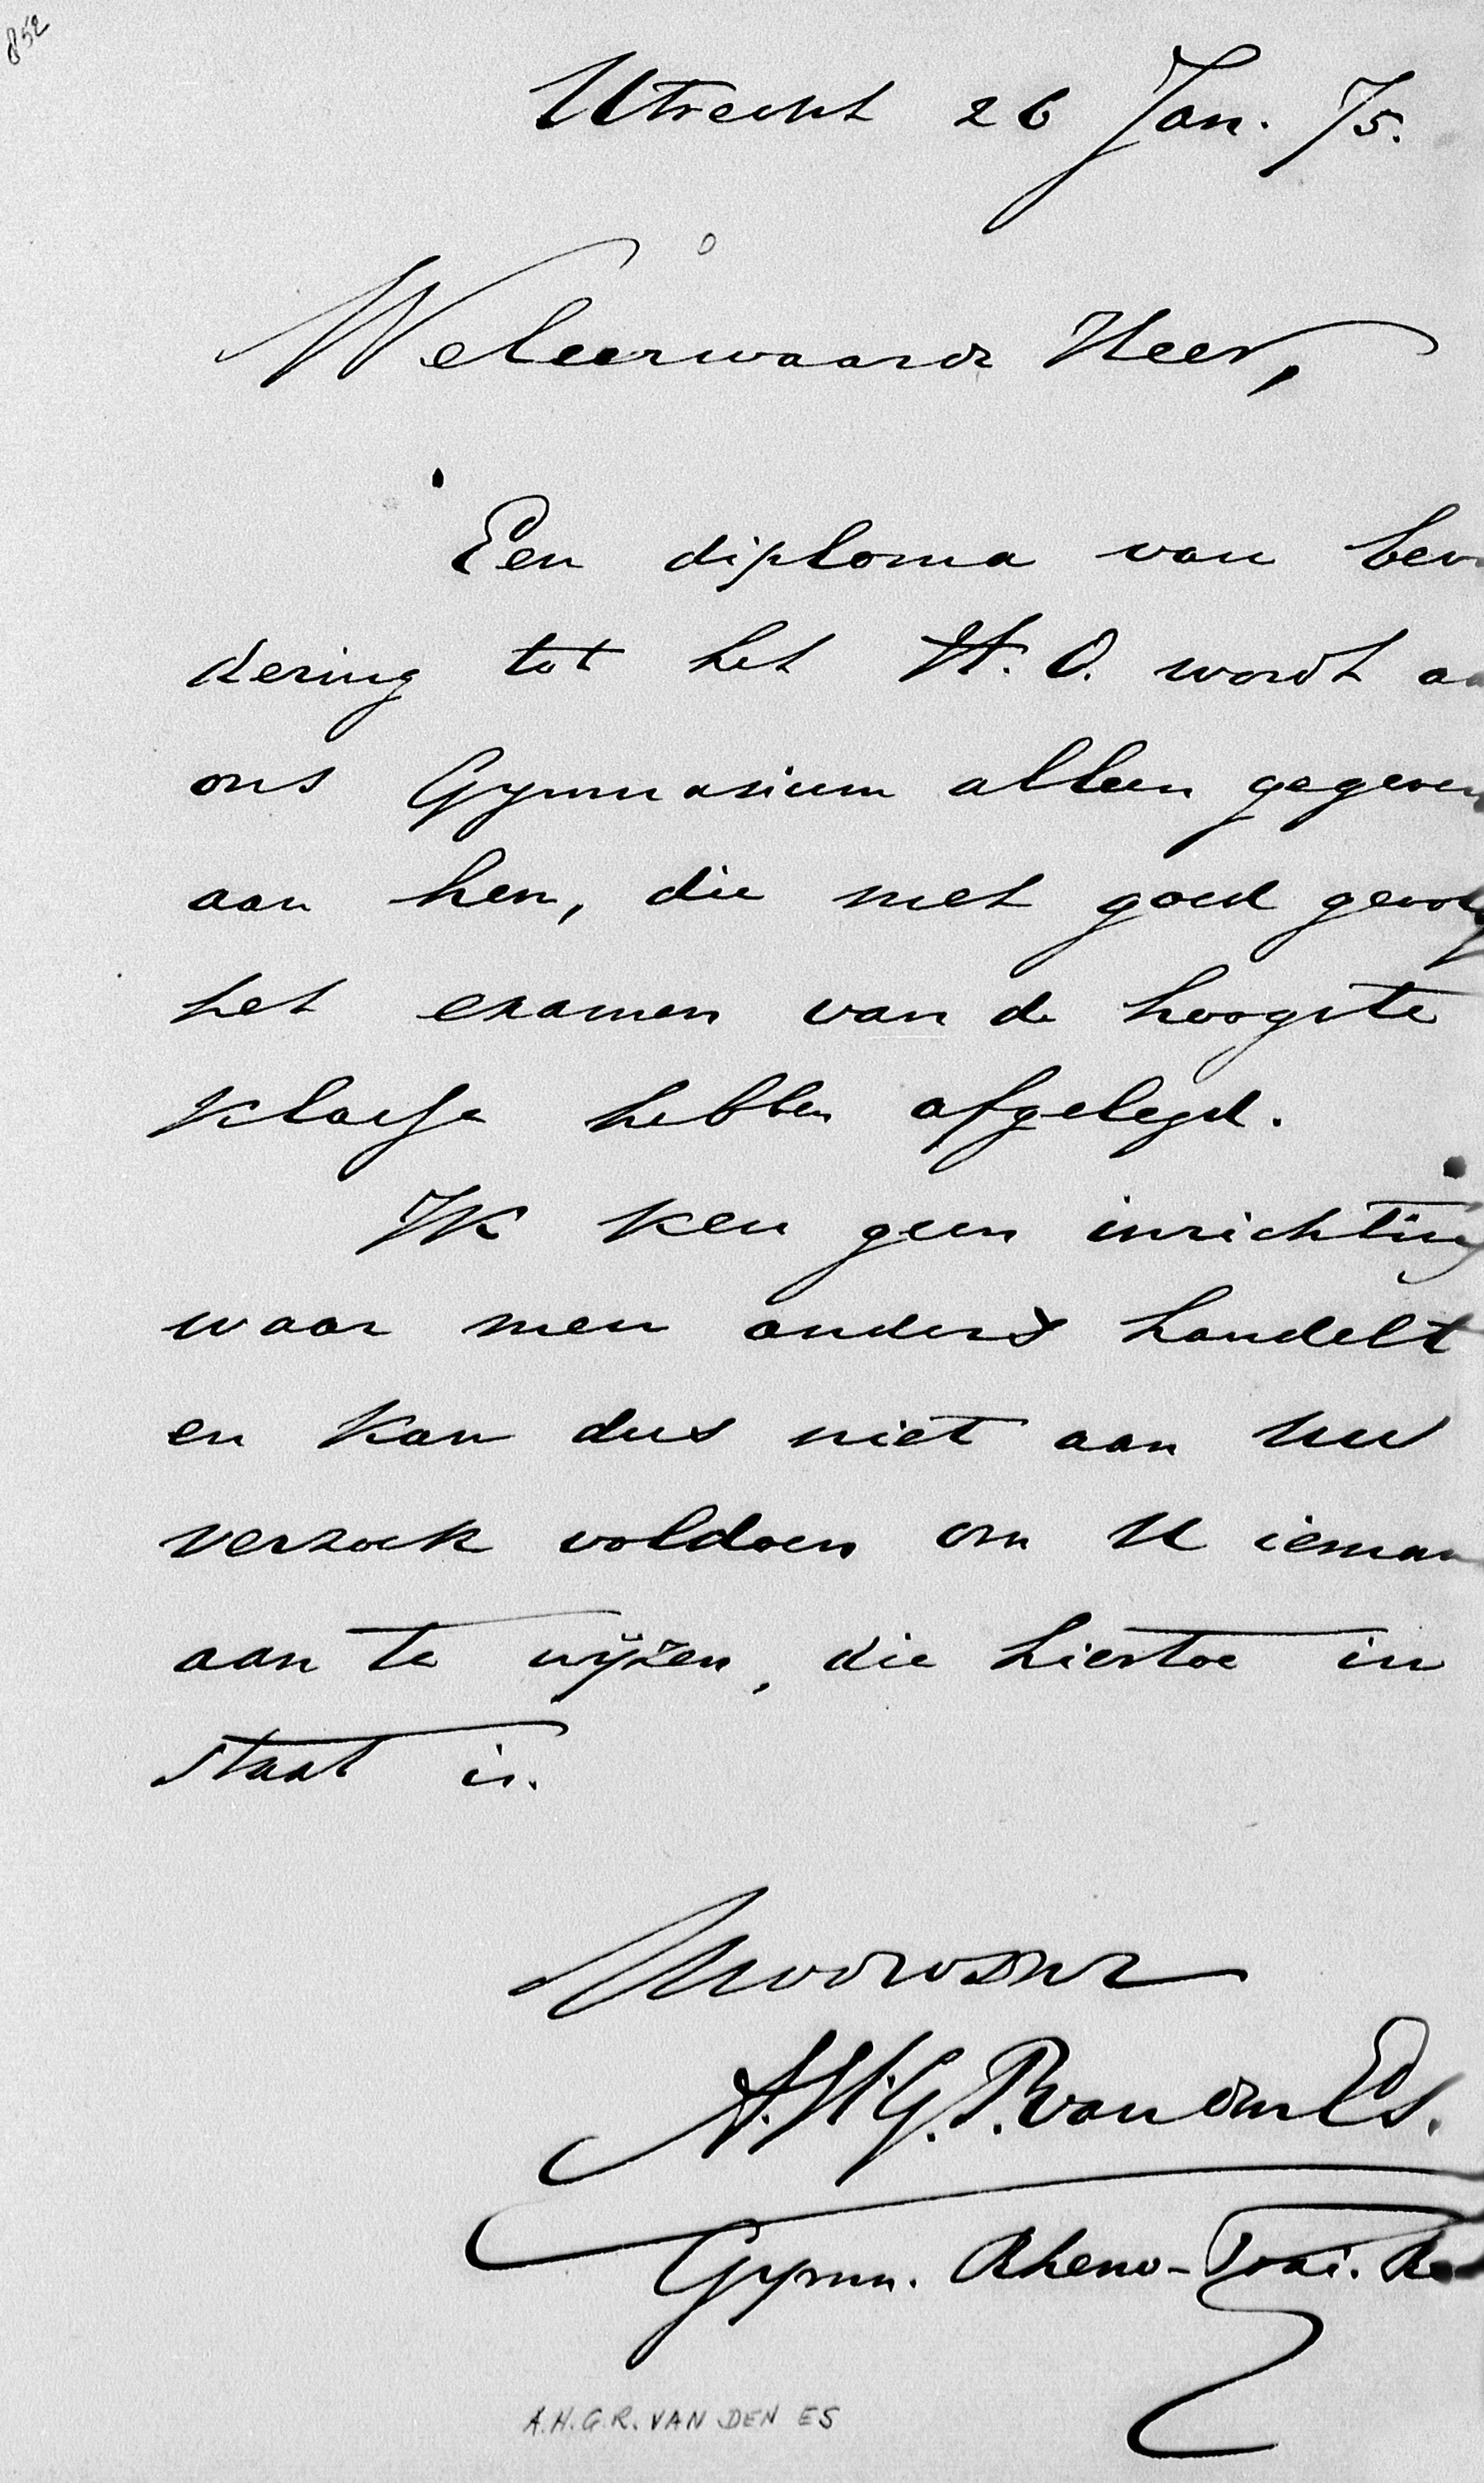 852
Utrecht 26 Jan. 75.
Weleerwaarde Heer,
Een diploma van bev
dering tot het H. O. wordt aa
ons Gymnasium alleen gegeven
aan hen, die met goed gevolg
het examen van de hoogste
klasse hebben afgelegd.
Ik ken geen inrichting
waar men anders handelt
en kan dus niet aan uw
verzoek voldoen om U ieman
aan te wijzen, die hiertoe in
staat is.
A.H.G.P. van den Es.
Gymn. Rheno-Trai. Re
A.H.G.R. VAN DEN ES